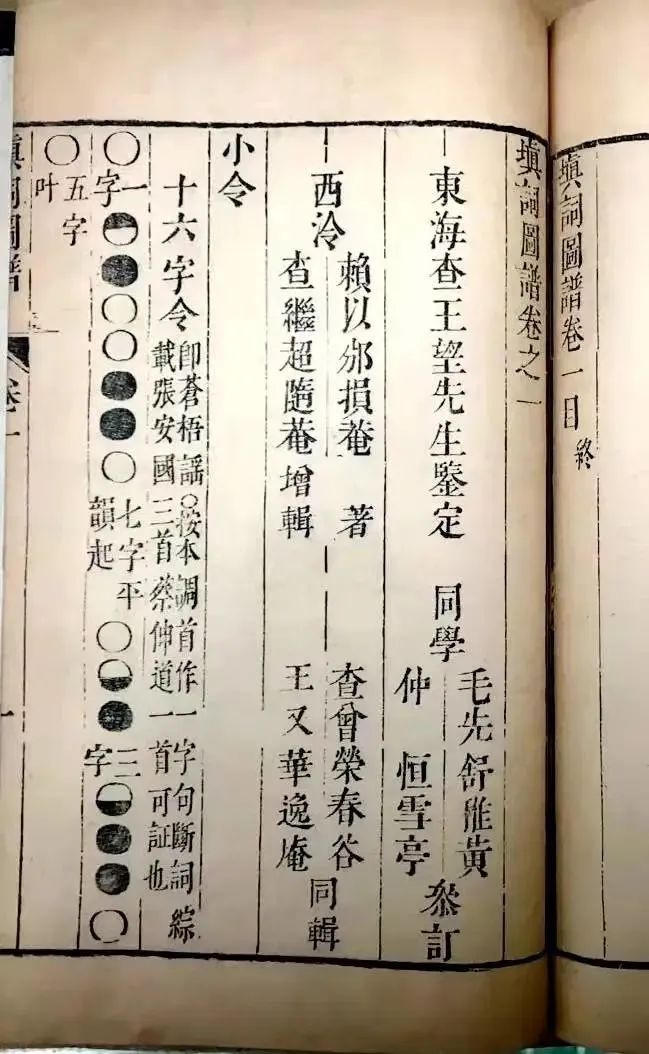 填詞圖譜卷一目終
填詞圖譜卷之一
東海查王望先生鑒定 同學
毛先舒稚黃
仲 恒雪亭
叅訂
西泠
賴以邠損菴 著
查繼超隨菴增輯
查曾榮春谷
王又華逸菴
同輯
小令
十六字令
卽蒼梧謠○按本調首作一字句斷詞綜
載張安國三首蔡伸道一首可証也
○一字◓●○○●●○七字平韻起○◒●三字◒●●○
○五字叶
填詞圖譜 卷一 一